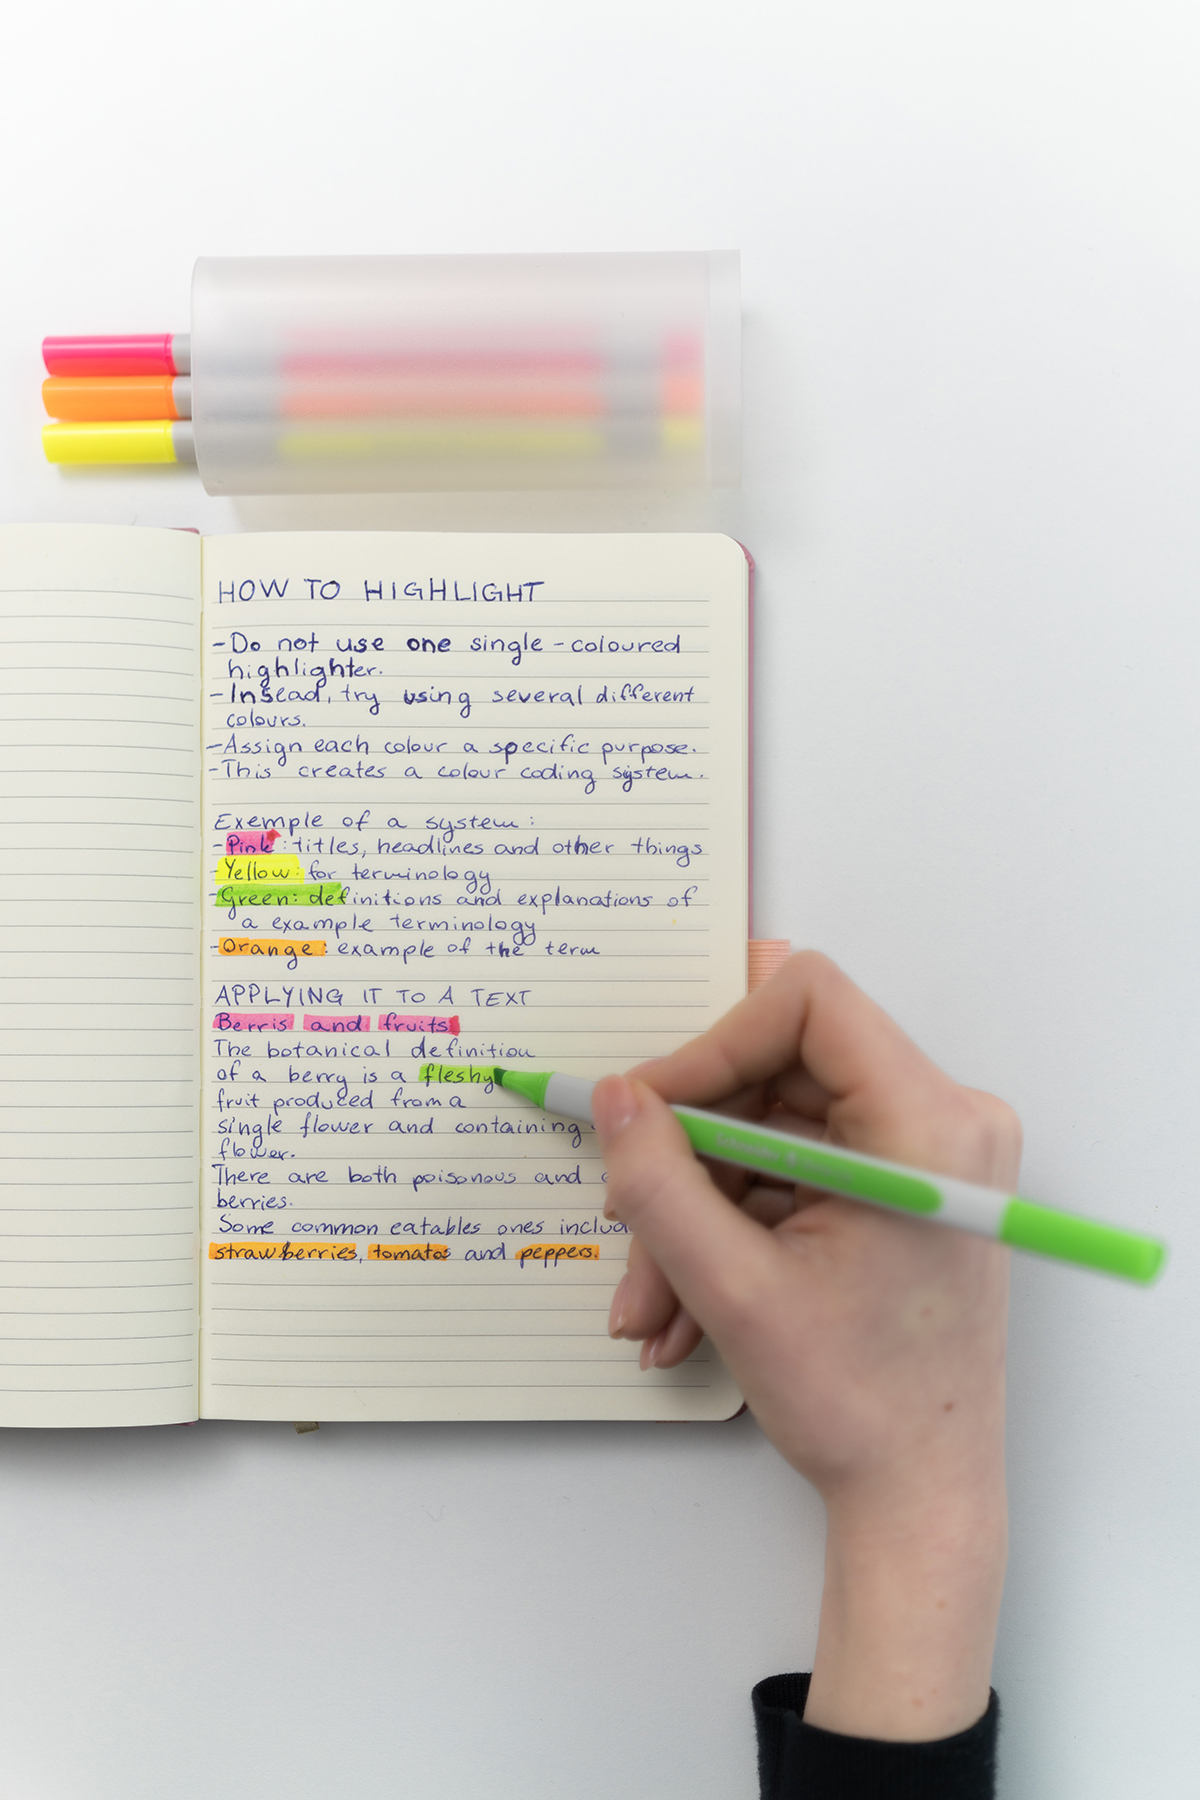 HOW TO HIGHLIGHT
- Do not use one single - coloured
highlighter.
- Instead, try using several different
colours.
- Assign each colour a specific purpose.
- This creates a colour coding system.
Exemple of a system:
- Pink: titles, headlines and other things
- Yellow: for terminology
- Green: definitions and explanations of
a example terminology
- Orange: example of the term
APPLYING IT TO A TEXT
Berris and fruits
The botanical definition
of a berry is a fleshy
fruit produced from a
single flower and containing
flower.
There are both poisonous and
berries.
Some common eatables ones includ
strawberries, tomatos and peppers.
Schneider